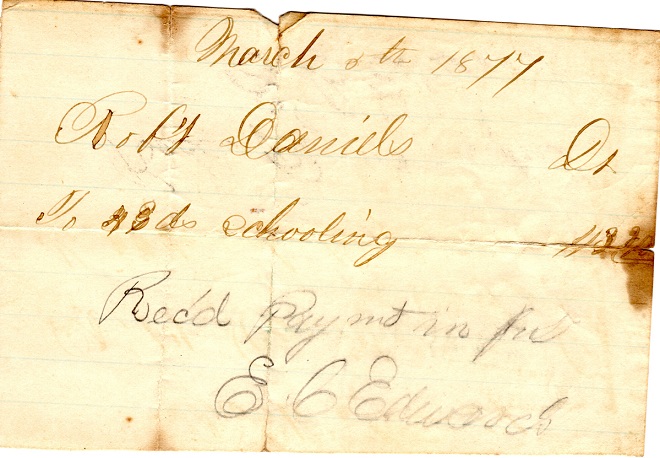 March 5th 1877
Rob't Daniels Dr
To ds schooling
Rec'd Paymt in full
E. C Edwards